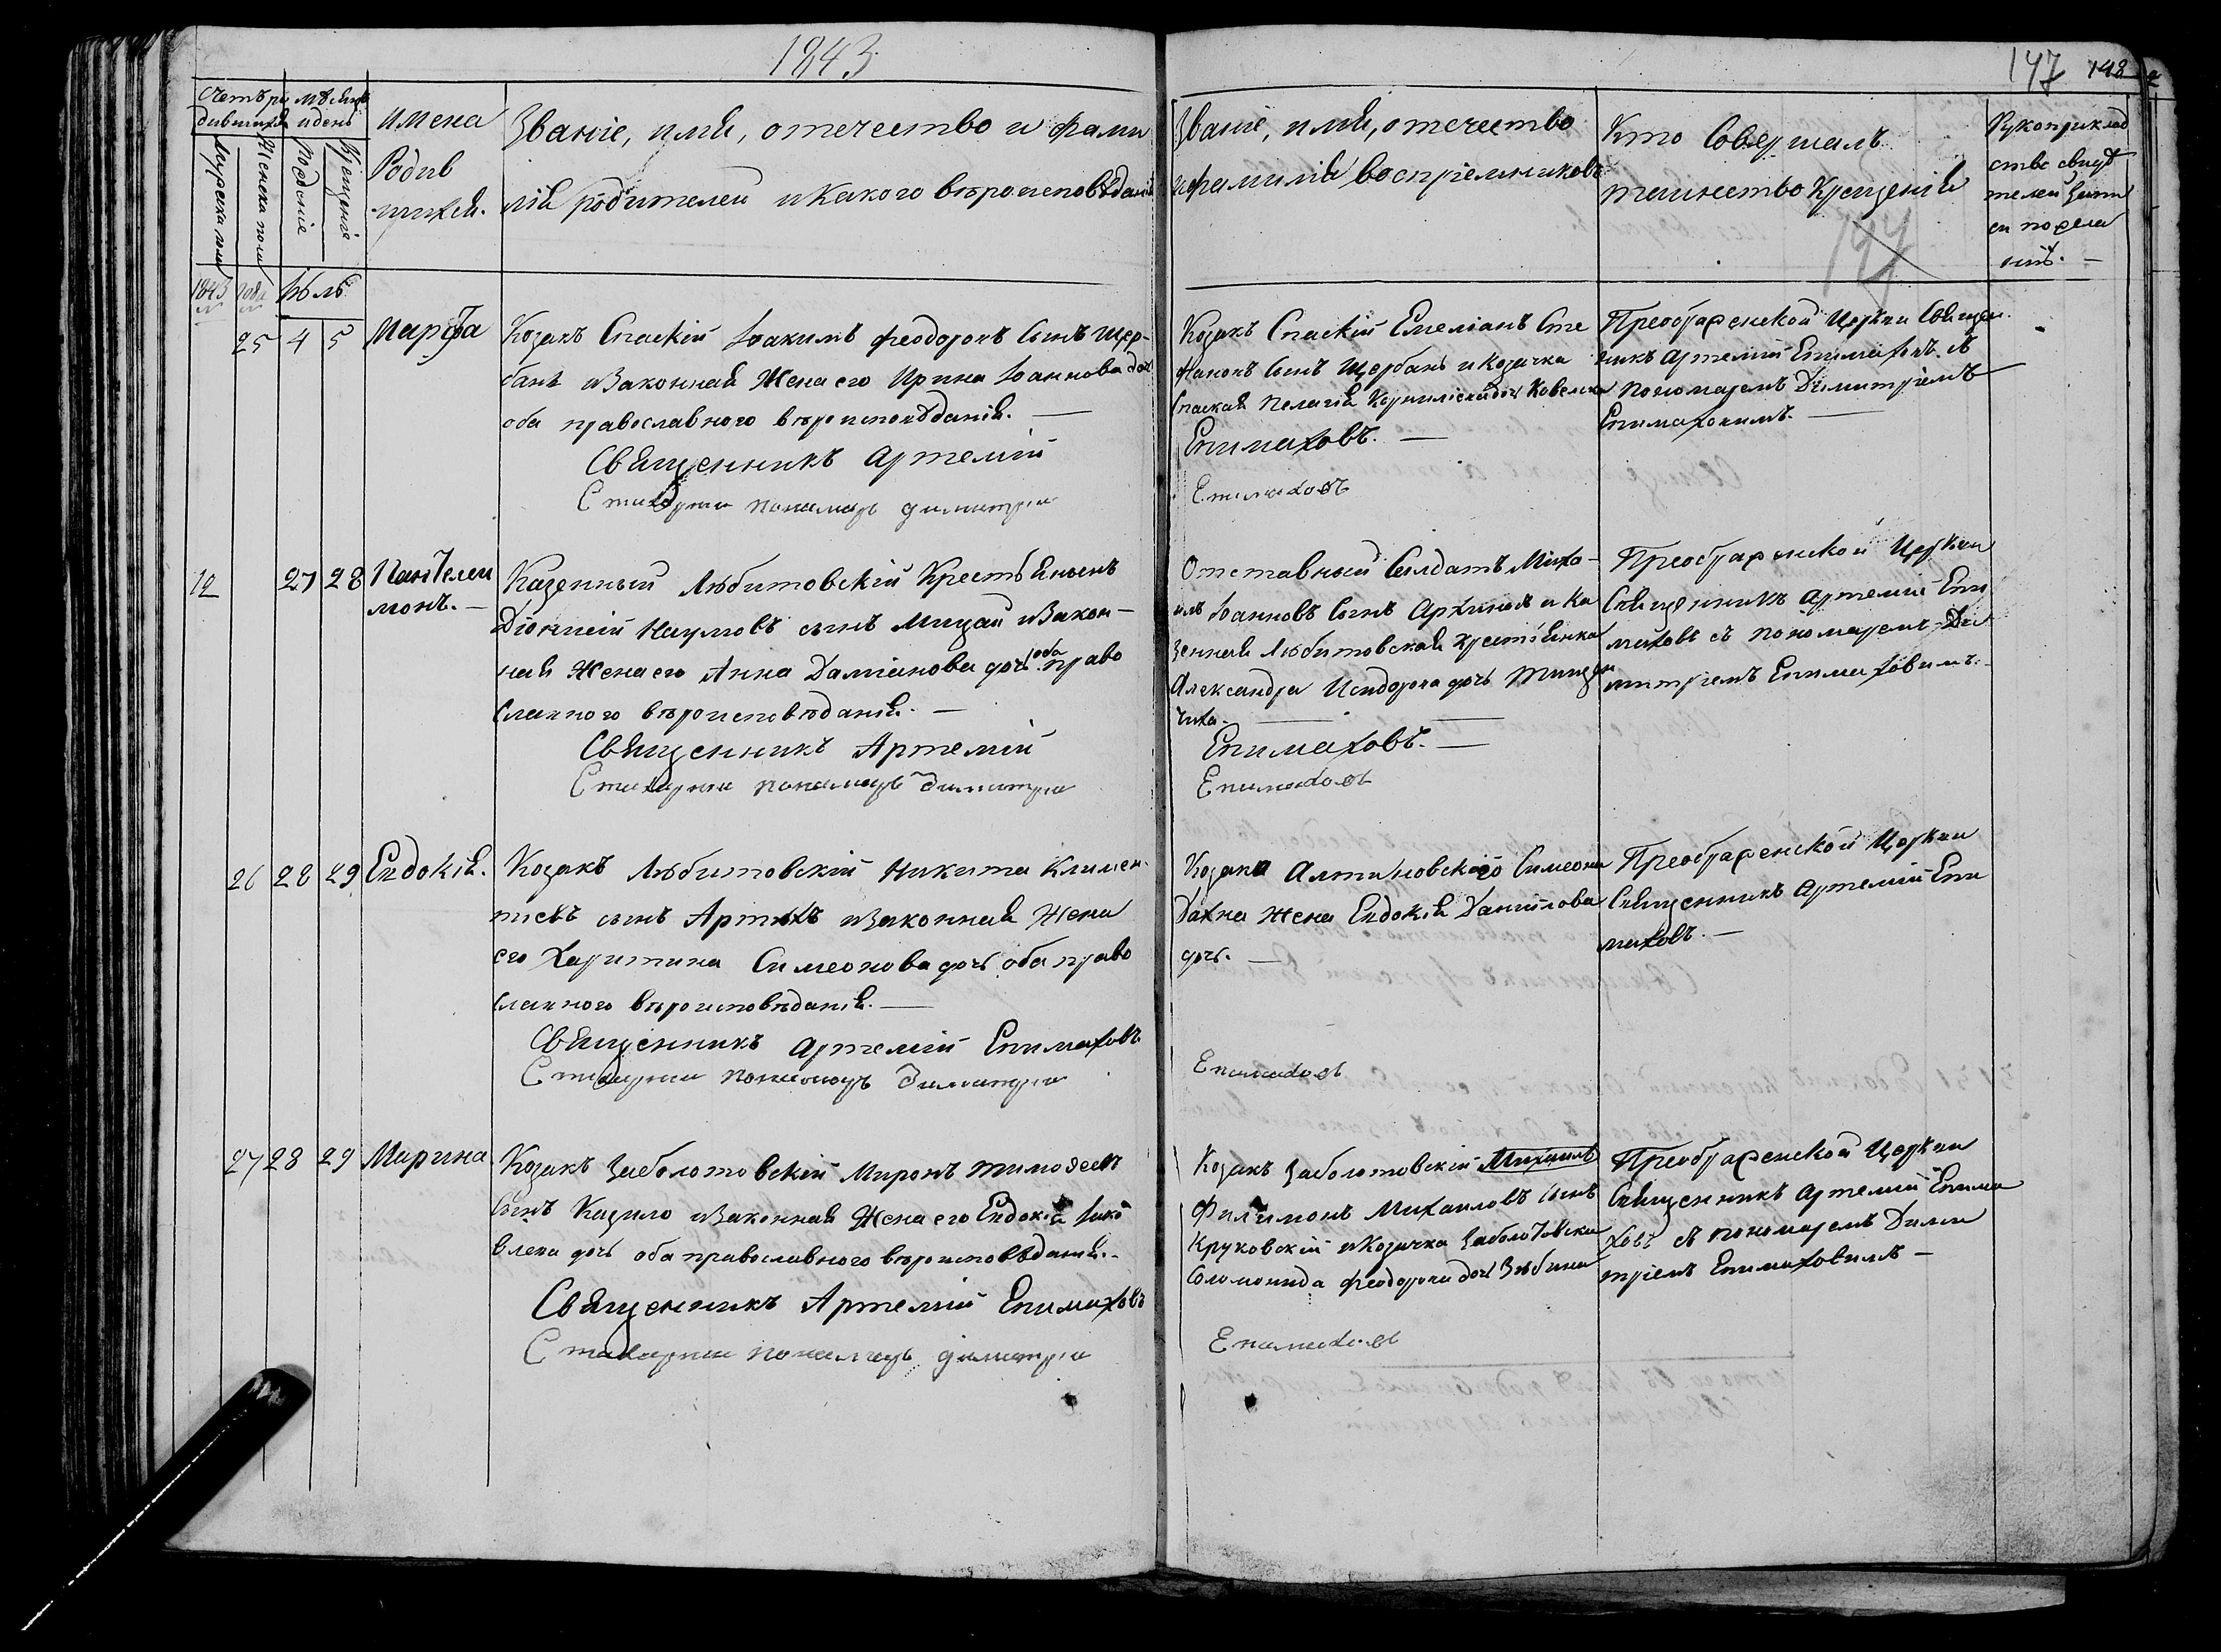 1843
147 148
Счетъ ро мѣсяцъ
дившихся и день
Мужеска пола
Женска пола
Рожденіе
Крещеніе
имена
Родив
шихся.
Званіе, имя, отечество и фами
лія родителей и какого вѣроисповѣданія
Званіе, имя, отечество
и фамилія воспріемниковъ
Кто совершалъ
таинство Крещенія
147
Рукоприклад
ство свидѣ
телей запи
си по жела
нію.
1843 года Іюль
25 4 5 Марѳа
Козакъ Спаскій Іоакимъ Феодоровъ сынъ Щер-
банъ и законная жена его Ирина Іоаннова доч
оба православного вѣроисповѣданія. —
Священникъ Артемій
Стихарни пономарь димитри
Козакъ Спаскій Емеліанъ Сте
фановъ сынъ Щербанъ и козачка
Спаская Пелагія Корниліева доч
Епимаховъ. —
Епимаховъ
Преображенской Церкви Священ
никъ Артемій Епимаховъ съ
пономаремъ Димитріемъ
Епимаховимъ. —
12 27 28 Пантелеи
монъ. —
Казенный Любитовскій Крестьянинъ
Діонисій Наумовъ сынъ Мицай и закон-
ная Жена его Анна Даміанова дочь оба право
славного вѣроисповѣданія. —
Священникъ Артемій
Стихарни пономарь Димитри
Отставный Солдатъ Миха-
илъ Іоанновъ сынъ и Ка
зенная Любитовская крестьянка
Александра Исидорова дочь
чиха. —
Епимаховъ. —
Епимаховъ
Преображенской Церкви
Священникъ Артемій Епи
маховъ съ пономаремъ Ди
митріемъ Епимаховимъ. —
26 28 29 Евдокія.
Козакъ Любитовскій Никита Климен-
тіевъ сынъ Артюхъ и законная Жена
его Харитина Симеонова дочь оба право
славного вѣроисповѣданія. —
Священникъ Артемій Епимаховъ
Стихарни пономарь Димитри
Козака Алтиновского Симеона
Дахна жена Евдокія Даніилова
дочь. —
Епимаховъ
Преображенской Церкви
Священникъ Артемій Епи
маховъ. —
27 28 29 Марина
Козакъ Заболотовскій Миронъ Тимоѳеевъ
сынъ Кадило и законная Жена его Евдокія Іако
влева дочь оба православного вѣроисповѣданія. -
Священникъ Артемій Епимаховъ
Стихарни пономарь димитри
Козакъ Заболотовскій Михаилъ
Филимонъ Михаиловъ сынъ
Круковскій и Козачка Заболотовска
Соломонида Феодорова доч Зюбина
Епимаховъ
Преображенской Церкви
Священникъ Артемій Епима
ховъ съ пономаремъ Дими
тріемъ Епимаховимъ —